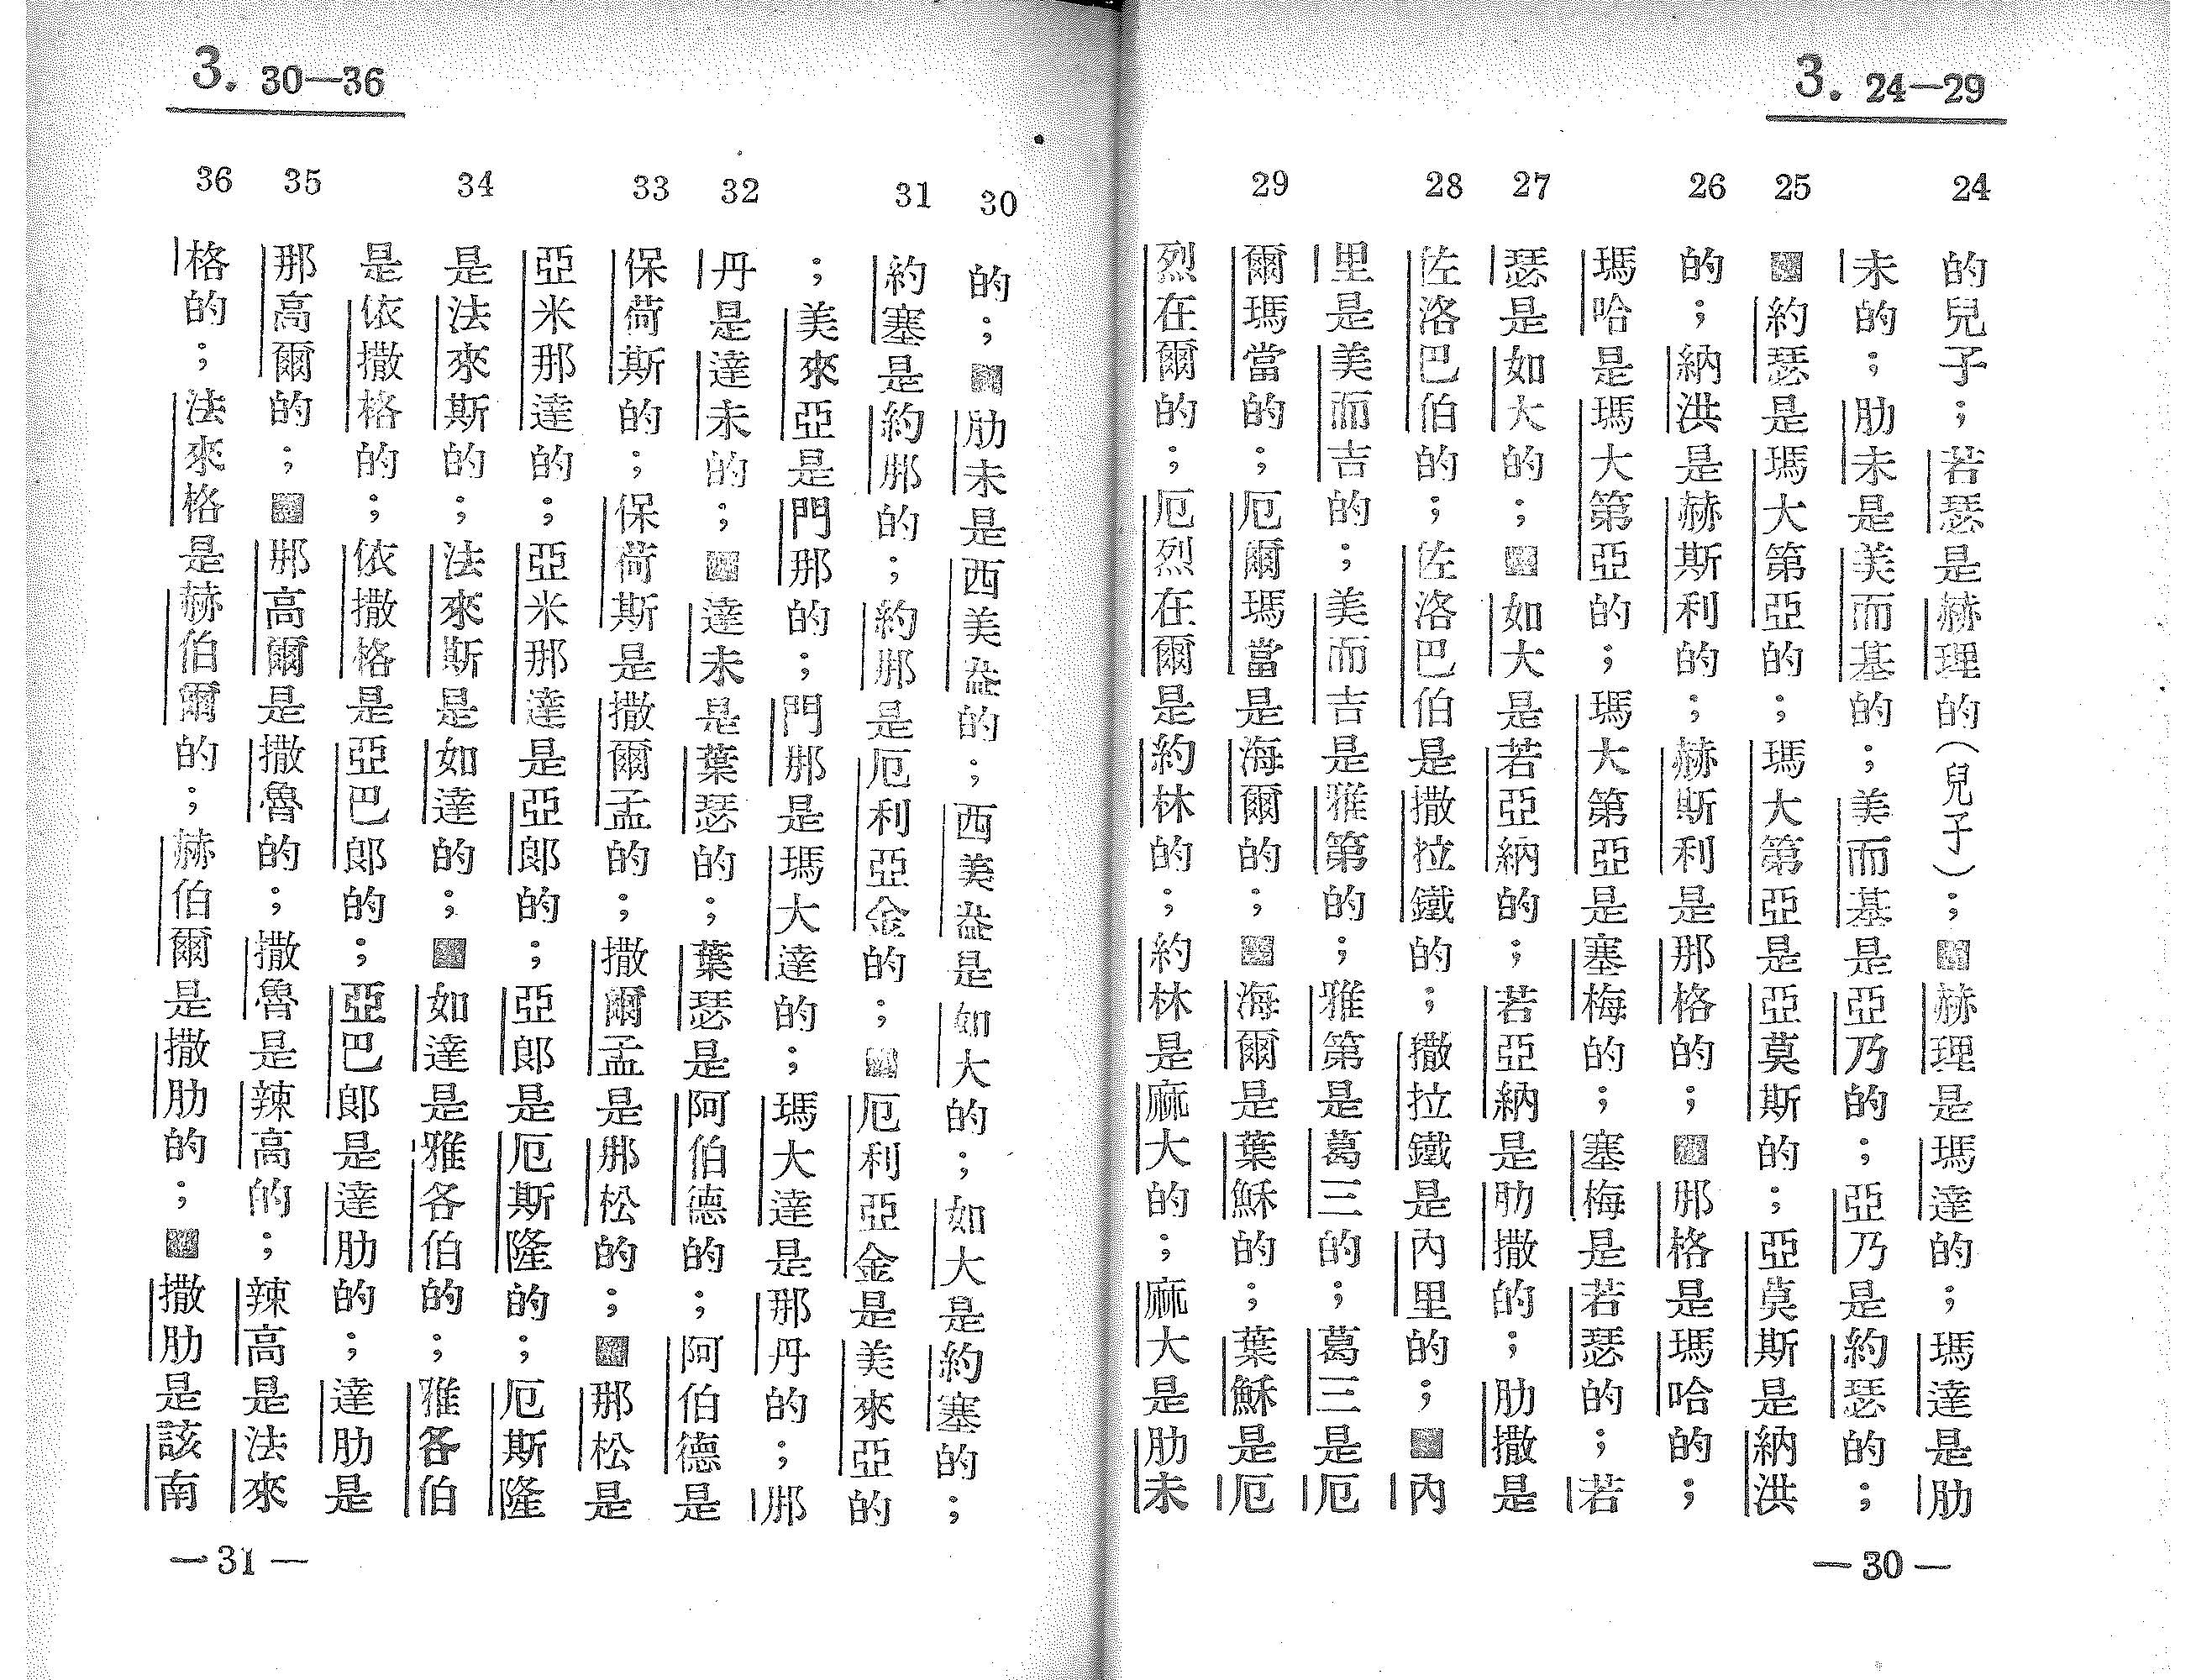 3. 24—29
24 25 26 27 28 29
的兒子；若瑟是赫理的（兒子）；赫理是瑪達的；瑪達是肋
未的；肋未是美而基的；美而基是亞乃的；亞乃是約瑟的；
約瑟是瑪大第亞的；瑪大第亞是亞莫斯的；亞莫斯是納洪
的；納洪是赫斯利的；赫斯利是那格的；那格是瑪哈的；
瑪哈是瑪大第亞的；瑪大第亞是塞梅的；塞梅是若瑟的；若
瑟是如大的；如大是若亞納的；若亞納是肋撒的；肋撒是
佐洛巴伯的；佐洛巴伯是撒拉鐵的；撒拉鐵是內里的；內
里是美而吉的；美而吉是雅第的；雅第是葛三的；葛三是厄
爾瑪當的；厄爾瑪當是海爾的；海爾是葉穌的；葉穌是厄
烈在爾的；厄烈在爾是約林的；約林是麻大的；麻大是肋未
—30—
3. 30—36
30 31 32 33 34 35 36
的；肋未是西美盎的；西美盎是如大的；如大是約塞的；
約塞是約那的；約那是厄利亞金的；厄利亞金是美來亞的
；美來亞是門那的；門那是瑪大達的；瑪大達是那丹的；那
丹是達未的；達未是葉瑟的；葉瑟是阿伯德的；阿伯德是
保荷斯的；保荷斯是撒爾孟的；撒爾孟是那松的；那松是
亞米那達的；亞米那達是亞郎的；亞郎是厄斯隆的；厄斯隆
是法來斯的；法來斯是如達的；如達是雅各伯的；雅各伯
是依撒格的；依撒格是亞巴郎的；亞巴郎是達肋的；達肋是
那高爾的；那高爾是撒魯的；撒魯是辣高的；辣高是法來
格的；法來格是赫伯爾的；赫伯爾是撒肋的；撒肋是該南
—31—